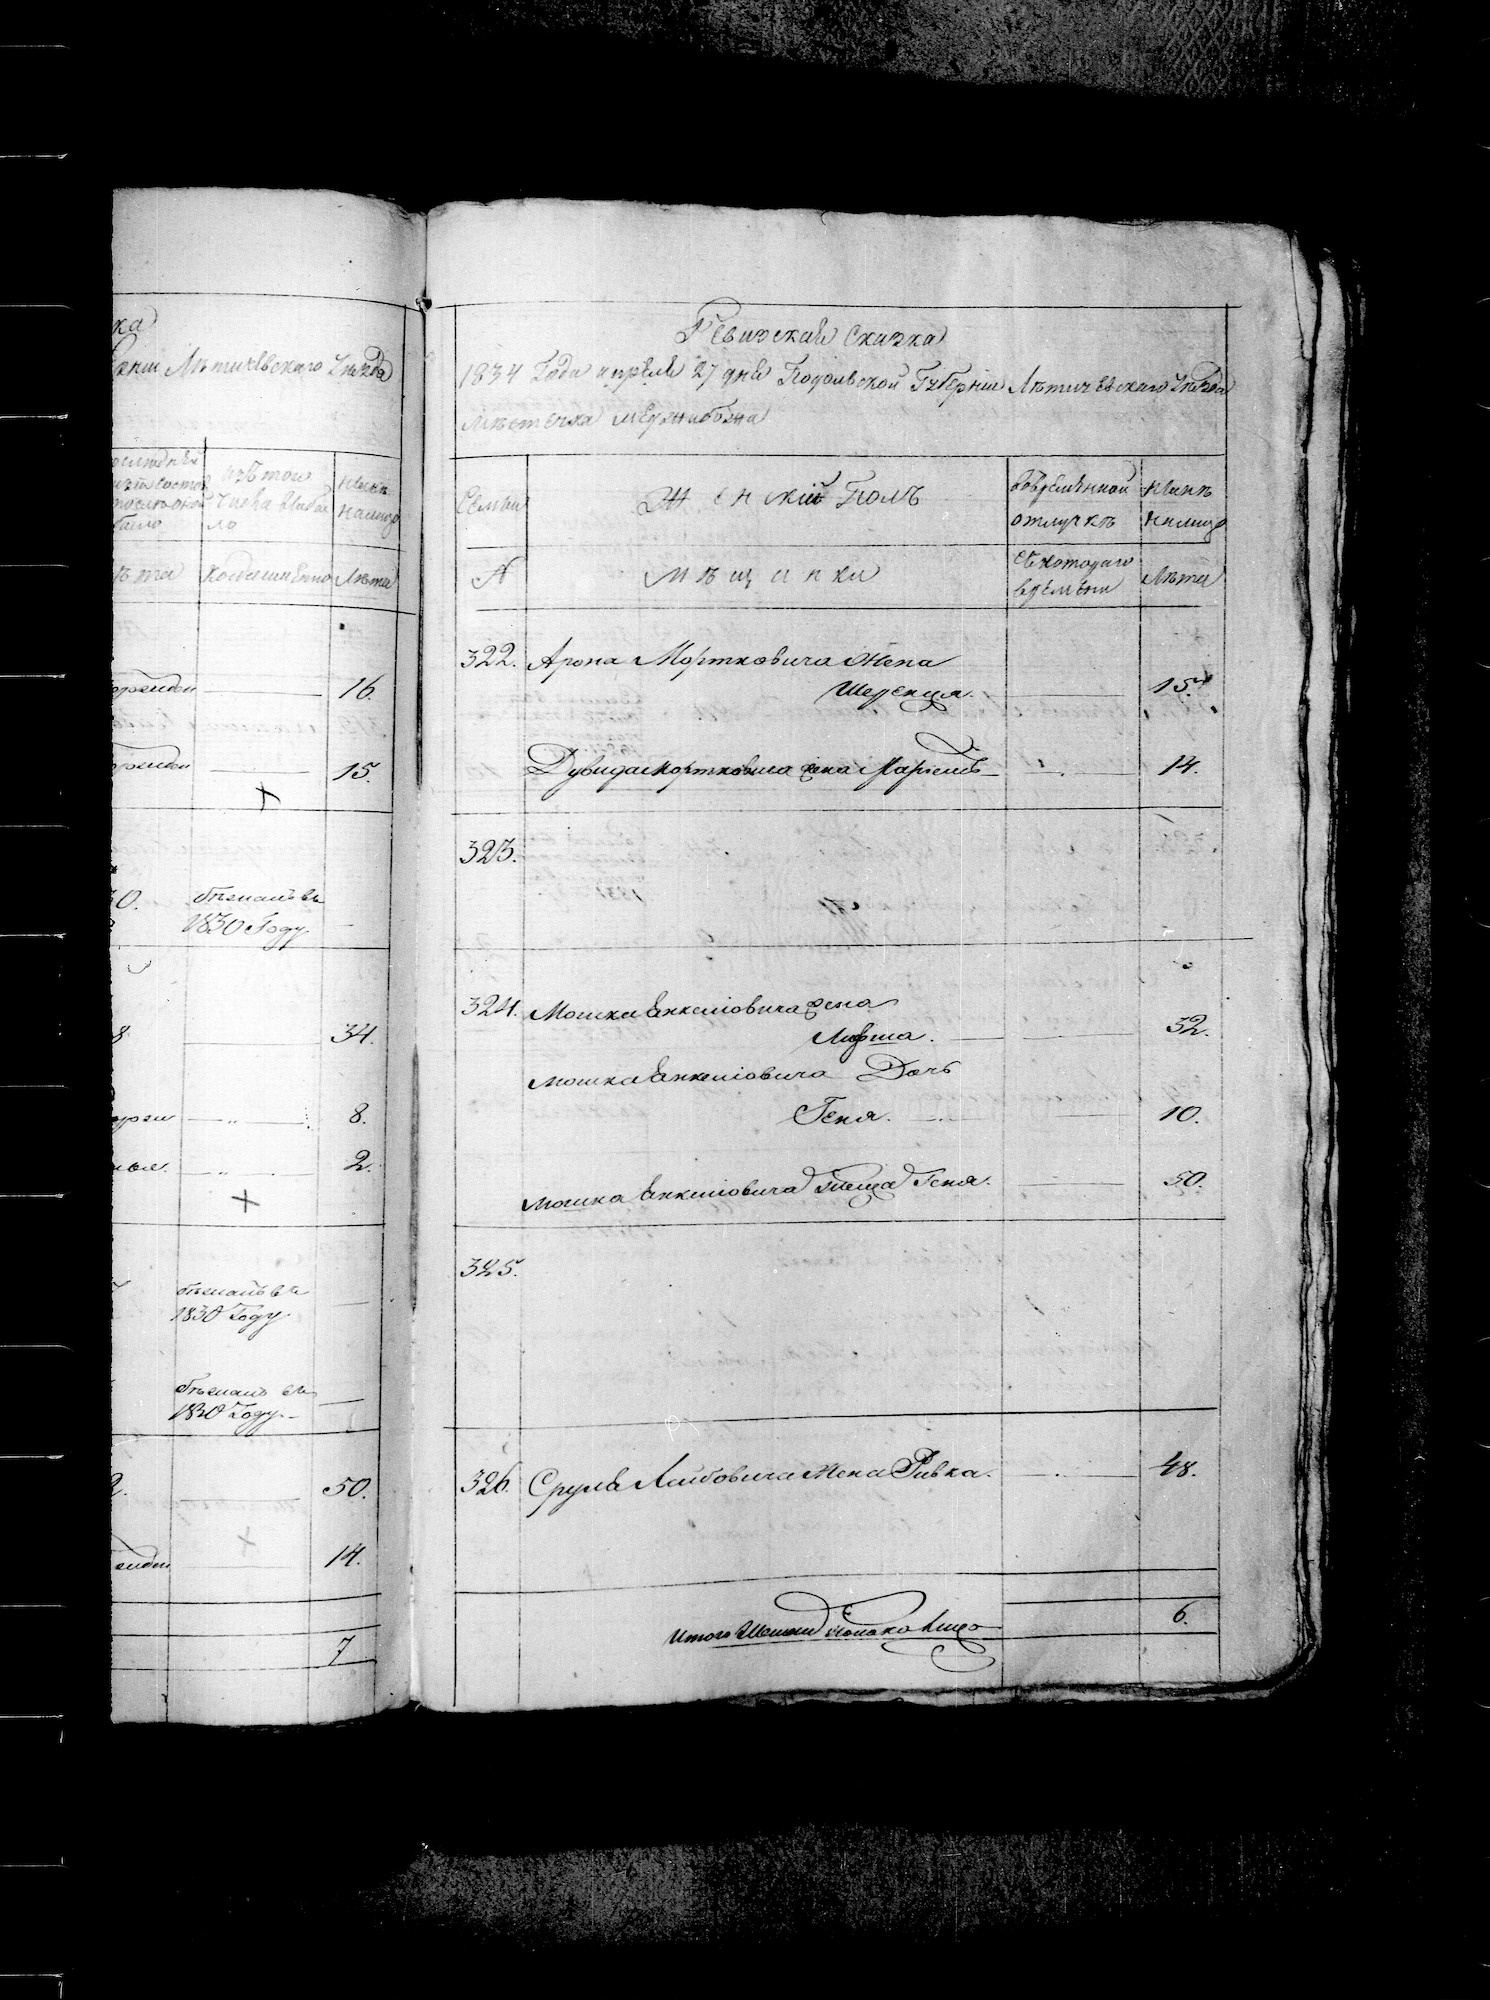 ка
Лѣтичевскаго Уѣзда
изъ того
числа выбы
ло
нынѣ
налицо
когда именно
Лѣта
16.
15.
бѣжалъ въ
1830 Году
34.
8.
2.
бѣжалъ въ
1830 Году
бѣжалъ въ
1830 Году
50.
14.
7
Ревизская Сказка
1834 Года апреля 27 дня Подольской Губерніи Лѣтичевскаго Уѣзда
Мѣстечка Межибожа
Семьи
Женскій Полъ
Во временной
отлучкѣ
нынѣ
налицо
№
Мѣщанки
Съ котораго
времени
Лѣта
322. Арона Мортковича Жена
15.
Дувида Мортковича жена Маріемъ 14.
323.
324. Мошка Янкеліовича жена
32.
Мошка Янкеліовича Дочь
Геня. 10.
Мошка Янкеліовича теща Геня. 50.
325.
326. Сруля Лейбовича Жена Ривка. 48.
Итого Женска пола на Лицо 6.